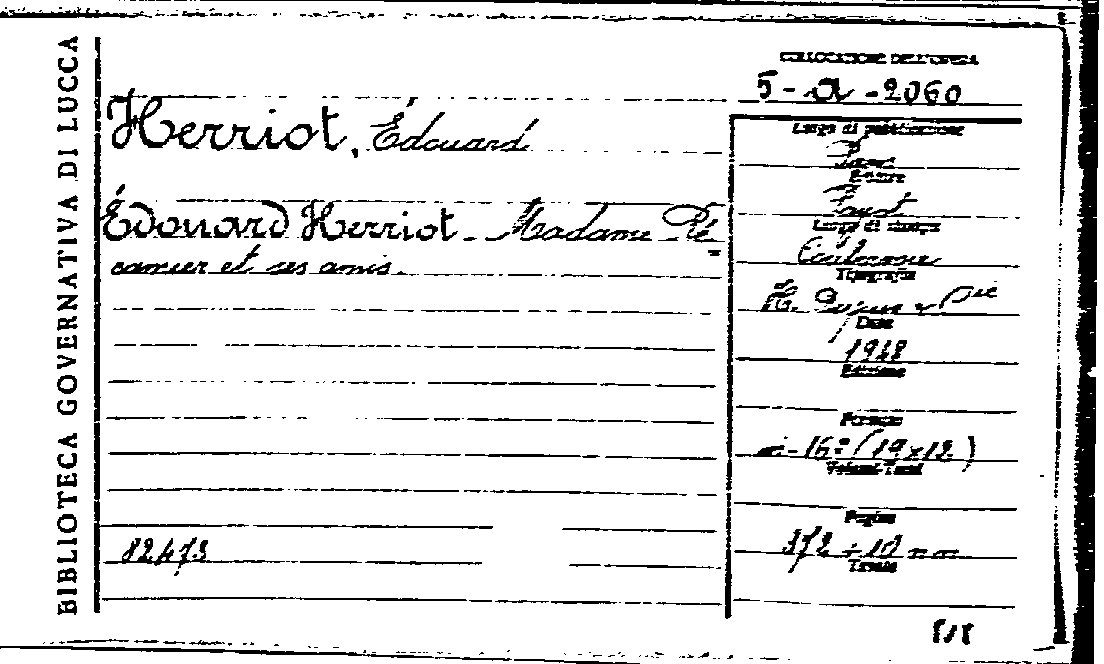 BIBLIOTECA GOVERNATIVA DI LUCCA
COLLOCAZIONE DELL'OPERA
5 - a - 2060
Herriot, Édouard
Édouard Herriot - Madame Ré=
camier et ses amis.
82473
Luogo di pubblicazione
Editore
Payot
Luogo di stampa
Tipografia
Date
Edizione
Formato
in-16º (19x12)
Volumi-Tomi
Pagine
372 + 10 nn.
Tavole